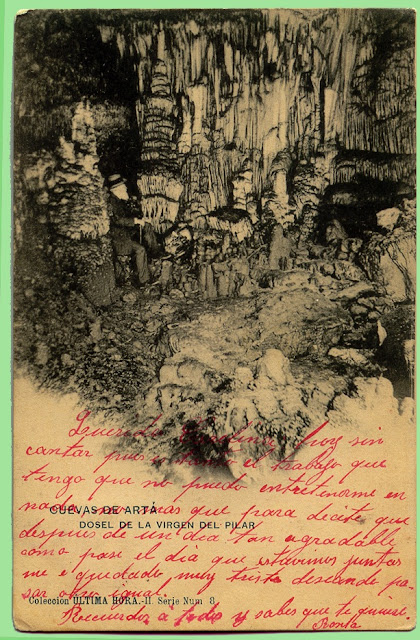 Querida Carolina, hoy sin
cantar pues tanto el trabajo que
tengo que no puedo entretenerme en
nada no mas que para decirte que
CUEVAS DE ARTÁ
DOSEL DE LA VIRGEN DEL PILAR
despues de un dia tan agradable
como pase el dia que estuvimos juntas
me e quedado muy triste deseando pa-
sar otro igual.
Colección ULTIMA HORA.-II. Serie Num 8.
Recuerdos a todos y sabes que te quiere